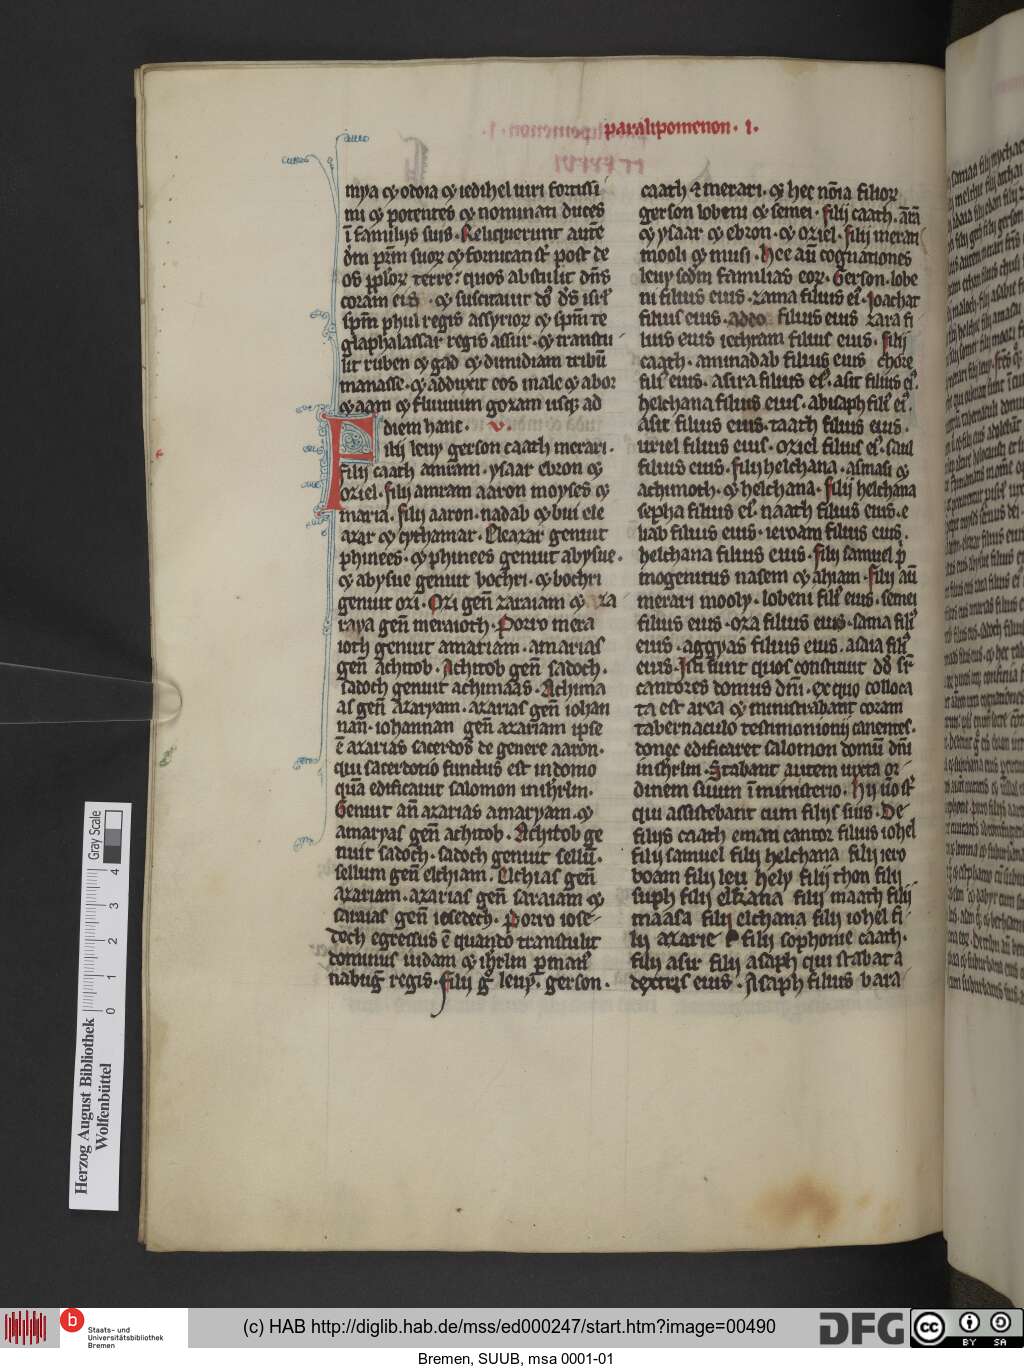 paralipomenon · i ·
mya ⁊ odoia ⁊ iedihel uiri fortissi
mi ⁊ potentes ⁊ nominati duces
ī familiis suis · Reliquerunt autē
dm̄ pr̄m suoꝝ ⁊ fornicati st̄ post de
os pploꝝ terre · quos abstulit dn̄s
coram eis · ⁊ suscitauit ds̄ isrl̄
spm̄ phul regis assyrioꝝ ⁊ spm̄ te
glaphalassar regis assur · ⁊ transtu
lit ruben ⁊ gad ⁊ dimidiam tribū
manasse · ⁊ adduxit eos in ale ⁊ abor
⁊ aam ⁊ fluuium goxam usqꝫ ad
diem hanc · v ·
Filij leuy gerson caath merari ·
filij caath amram · ysaar ebron ⁊
oziel · filij amram aaron moyses ⁊
maria · filij aaron · nadab ⁊ biu ele
azar ⁊ cythamar · Eleazar genuit
phinees · ⁊ phinees genuit abysue ·
⁊ abysue genuit bochri · ⁊ bochri
genuit ozi · Ozi gen̄ zaraiam ⁊ za
raya gen̄ meraioth · Porro mera
ioth genuit amariam · amarias
gen̄ achitob · Achitob gen̄ sadoch ·
sadoch genuit achimaas · Achima
as gen̄ azaryam · azarias gen̄ iohan
nan · iohannan gen̄ azariam ipse
ē azarias sacerdos de genere aaron ·
qui sacerdotio functus est in domo
quā edificauit salomon in ihrlm ·
Genuit aū azarias amaryam · ⁊
amaryas gen̄ achitob · Achitob ge
nuit sadoch · sadoch genuit sellū ·
sellum gen̄ elchiam · Elchias gen̄
azariam · azarias gen̄ saraiam ⁊
saraias gen̄ iosedech · Porro iose
dech egressus ē quando transtulit
dominus iudam ⁊ ihrlm p manꝰ
nabug regis · filij g̊ leuy · gerson ·
caath ⁊ merari · ⁊ hec noīa filioꝝ
gerson lobeni ⁊ semei · filij caath · am̄
⁊ ysaar ⁊ ebron · ⁊ oziel · filij merari
mooli ⁊ musi · Hee aū cognationes
leuy scdm familias eoꝝ · Gerson · lobe
ni filius eius · zama filius eiꝰ · Joachat
filius eius · addo filius eius zara fi
lius eius iethram filius eius · filij
caath · aminadab filius eius chore
filꝰ eius · asira filius eiꝰ · asir filius eiꝰ ·
helchana filius eius · abisaph filꝰ eiꝰ ·
asir filius eius · taath filius eius ·
uriel filius eius · oziel filius eiꝰ · saul
filius eius · filij helchana · asmasi ⁊
achimoth · ⁊ helchana · filij helchana
sepha filius eiꝰ · naath filius eius · e
liab filius eius · ieroam filius eius ·
helchana filius eius · filij samuel p̄
mogenitus nasem ⁊ abiam · filij aū
merari mooly · lobeni filꝰ eius · semei
filius eius · oza filius eius · sama filꝰ
eius · aggyas filius eius · asaia filꝰ
eius · Isti sunt quos constituit dd̄ sr̄
cantores domus dn̄i · ex quo colloca
ta est area ⁊ ministrabant coram
tabernaculo testimonionij canentes ·
donec edificaret salomon domū dn̄i
in ihrlm · Stabant autem iuxta or
dinem suum ī ministerio · Hij ūo st̄
qui assistebant cum filijs suis · De
filijs caath eman cantor filius iohel
filij samuel filij helchana filij iero
boam filij leu hely filij thon filij
suph filij elkana filij maath filij
maasa filij elchana filij iohel fi
lij azarie filij sophonie caath ·
filij asir filij asaph qui stabat a
dextris eius · Asaph filius bara
Herzog August Bibliothek
Wolfenbüttel
Gray Scale
0 1 2 3 4
Staats- und
Universitätsbibliothek
Bremen
(c) HAB http://diglib.hab.de/mss/ed000247/start.htm?image=00490
DFG
cc BY SA
Bremen, SUUB, msa 0001-01